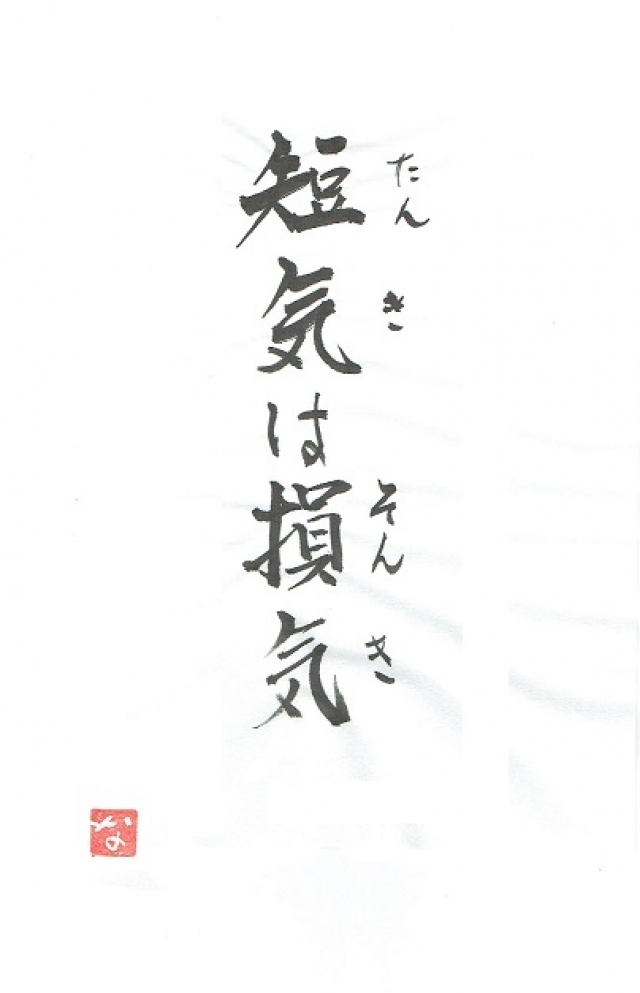 短気は損気
たんき そんき
な